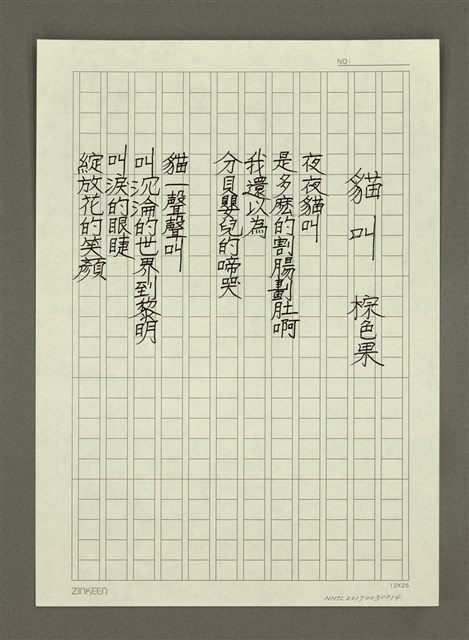 NO:
貓叫 棕色果
夜夜貓叫
是多麽的割腸劃肚啊
我還以為
分貝嬰兒的啼哭
貓一聲聲叫
叫沉淪的世界到黎明
叫淚的眼睫
綻放花的笑顏
ZINKEEN
12X25
NMTL20190030014